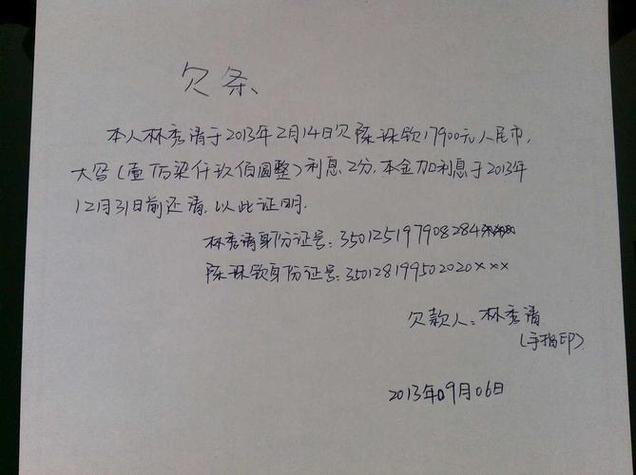 欠条
本人林秀清于2013年2月14日欠陈珠钦17900元人民币,
大写(壹万柒仟玖佰圆整)利息2分.本金加利息于2013年
12月31日前还清.以此证明.
林秀清身份证号:350125197908284
陈珠钦身份证号:35012819950 2020×××
欠款人:林秀清
(手指印)
2013年09月06日